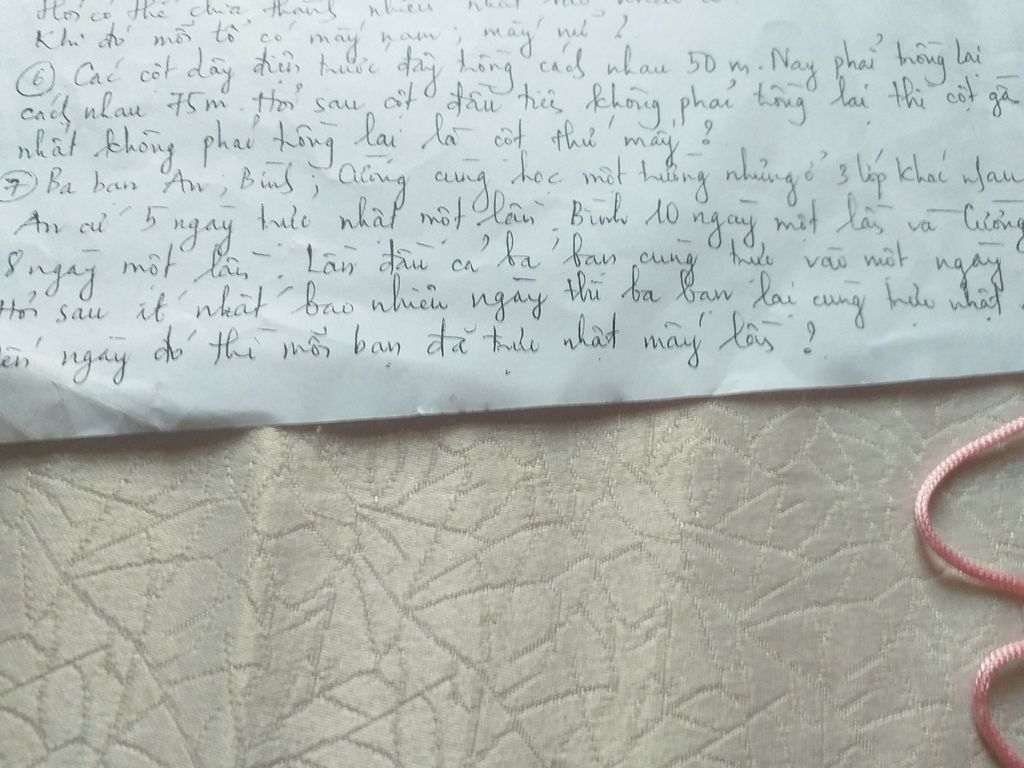 Hỏi có thể chia thành nhiều nhất
Khi đó mỗi tổ có mấy nam, mấy nữ ?
⑥ Các cột dây điện trước đây trồng cách nhau 50 m. Nay phải trồng lại
cách nhau 75m. Hỏi sau cột đầu tiên không phải trồng lại thì cột gần
nhất không phải trồng lại là cột thứ mấy ?
⑦ Ba bạn An, Bình, Cường cùng học một trường nhưng ở 3 lớp khác nhau
An cứ 5 ngày trực nhật một lần. Bình 10 ngày một lần và Cường
8 ngày một lần. Lần đầu cả ba bạn cùng trực vào một ngày
Hỏi sau ít nhất bao nhiêu ngày thì ba bạn lại cùng trực nhật
đến ngày đó thì mỗi bạn đã trực nhật mấy lần ?